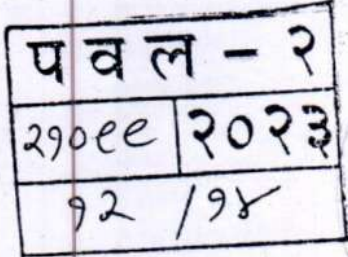 प व ल - २
२१०९९ २०२३
१२ /१४